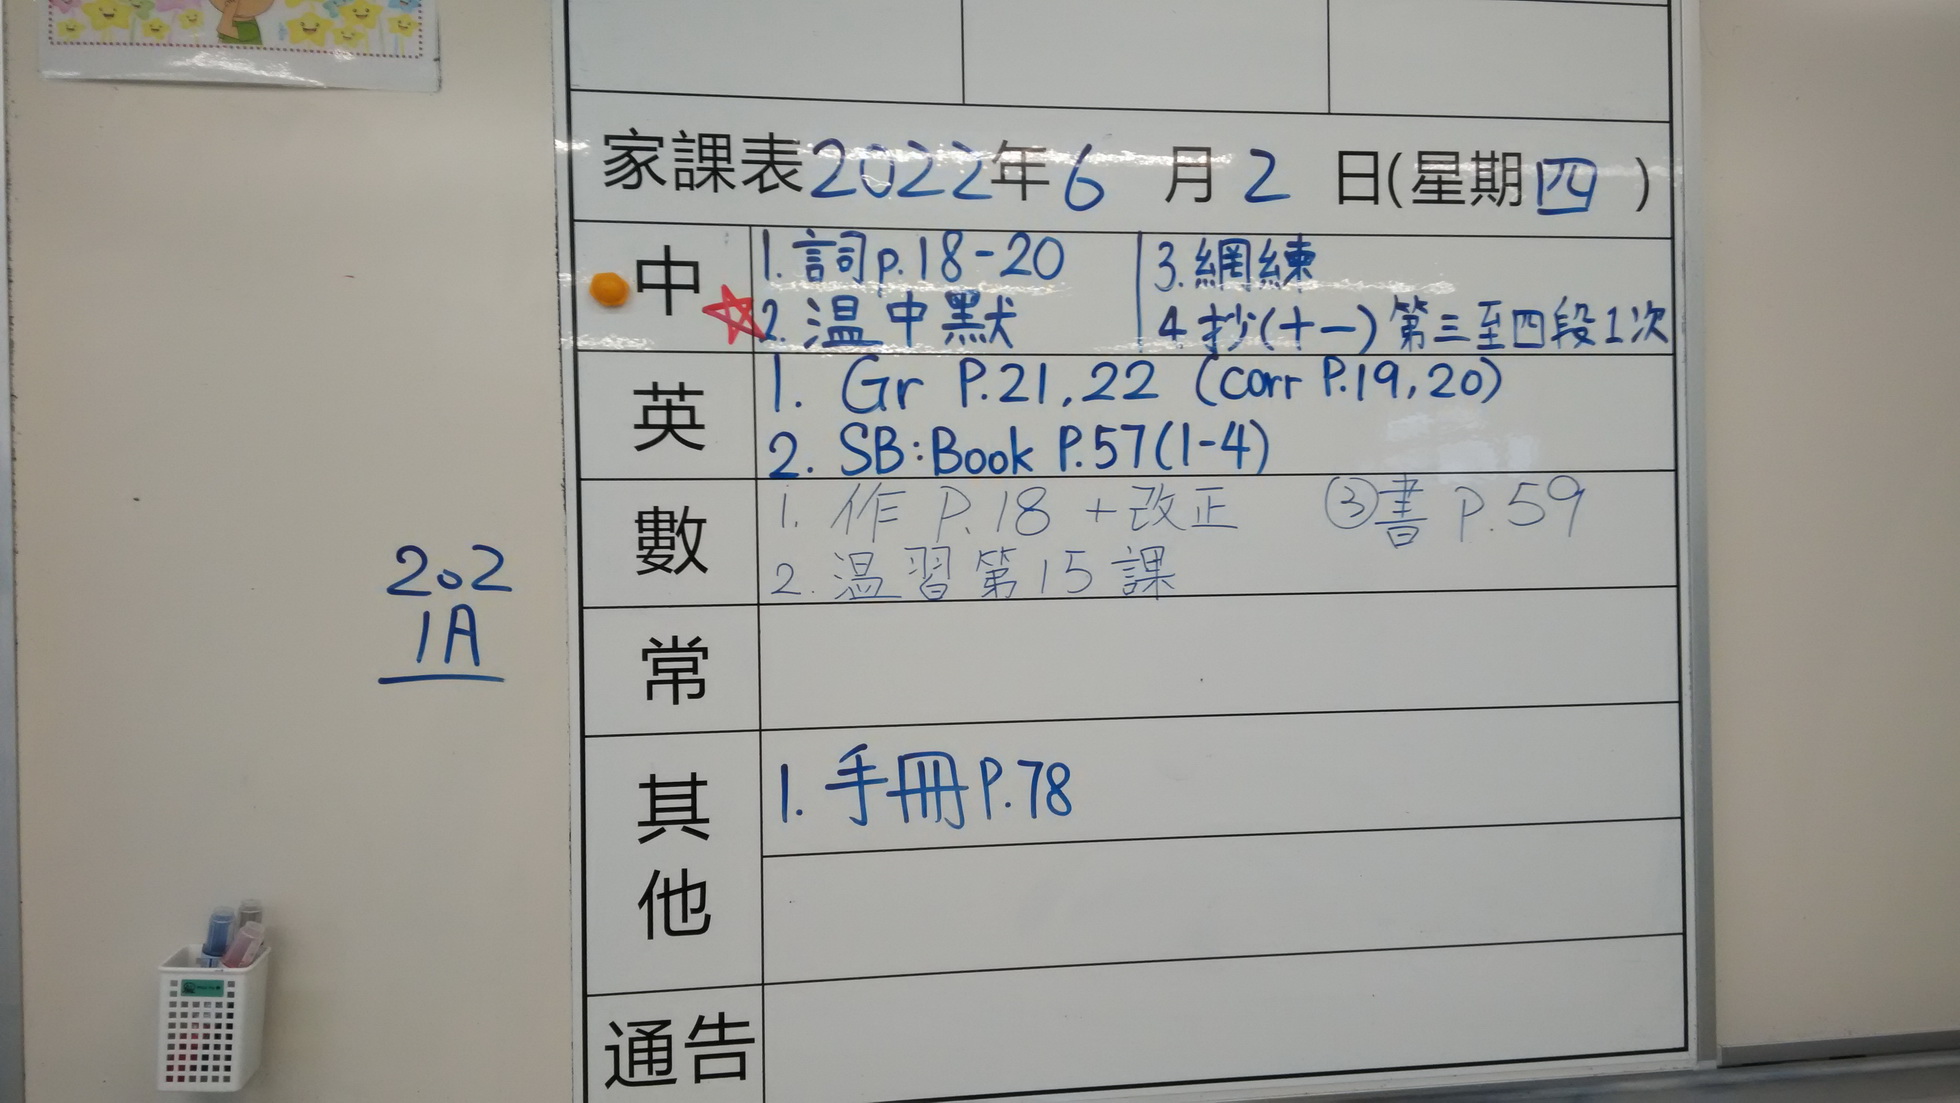 家課表2022年6月2日(星期四)
中
1. 詞p.18-20
2. 温中默
3. 網練
4. 抄(十一)第三至四段1次
英
1. Gr P.21,22 (corr P.19,20)
2. SB:Book P.57(1-4)
數
1. 作 P.18 +改正
③書 P.59
2. 温習第15課
202
1A
常
其他
1. 手冊P.78
通告